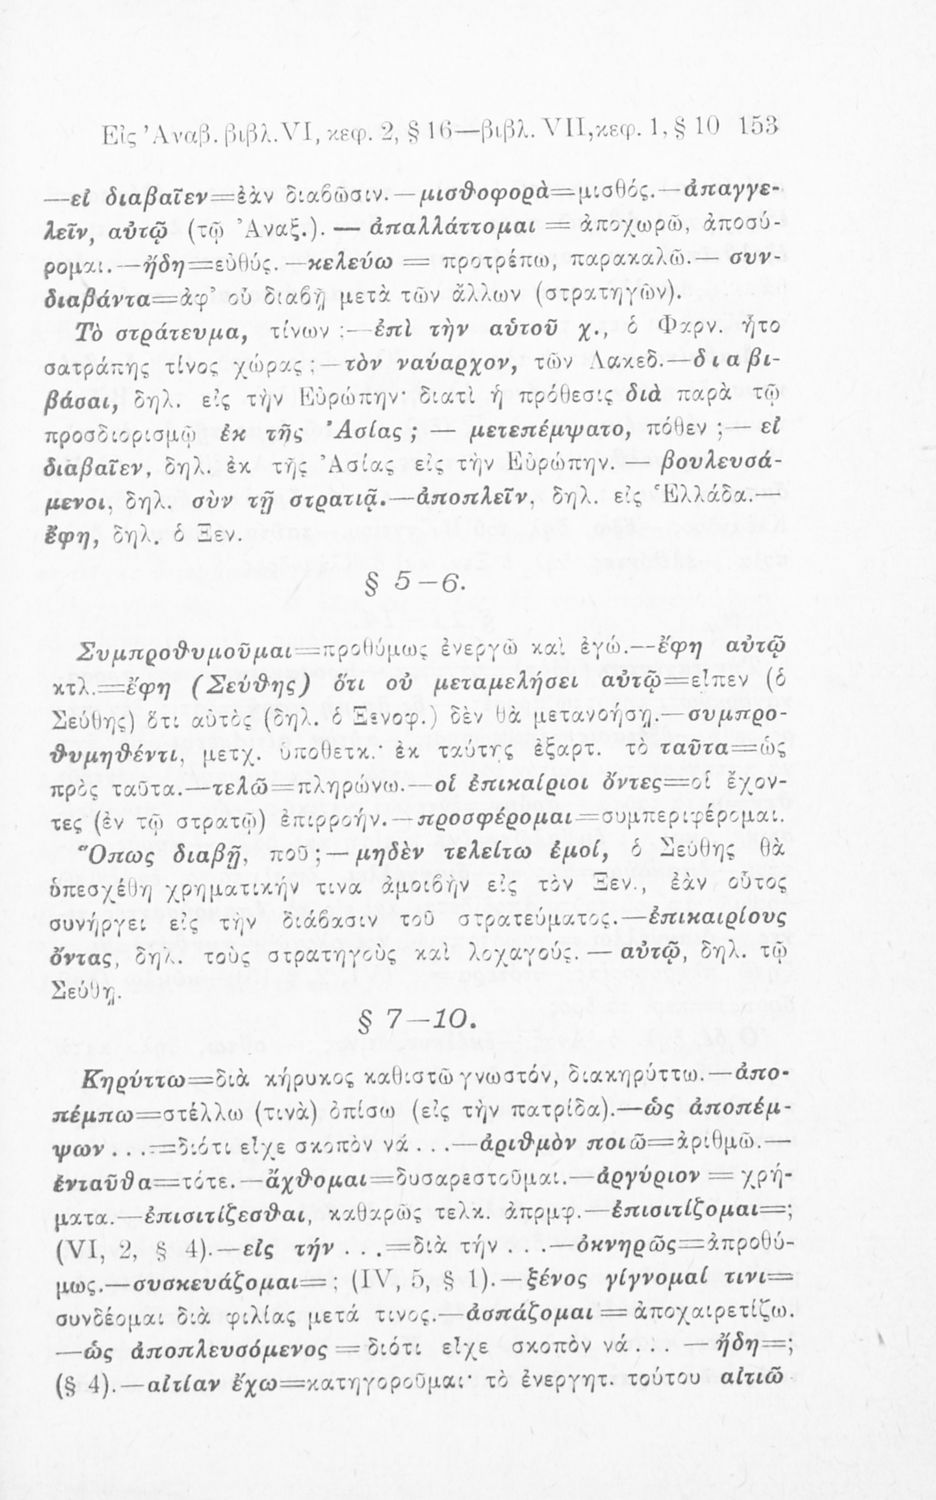 Εἰς Ἀναβ. βιβλ. VI, κεφ. 2, § 16—βιβλ. VII, κεφ. 1, § 10 153
—εἰ διαβαῖεν=ἐὰν διαβῶσιν.—μισθοφορὰ=μισθός.—ἀπαγγε-
λεῖν, αὐτῷ (τῷ Ἀναξ.). — ἀπαλλάττομαι = ἀποχωρῶ, ἀποσύ-
ρομαι.—ἤδη=εὐθύς.—κελεύω = προτρέπω, παρακαλῶ.— συν-
διαβάντα=ἀφ' οὗ διαβῇ μετὰ τῶν ἄλλων (στρατηγῶν).
Τὸ στράτευμα, τίνων ;—ἐπὶ τὴν αὑτοῦ χ., ὁ Φαρν. ἦτο
σατράπης τίνος χώρας ;—τὸν ναύαρχον, τῶν Λακεδ.—διαβι-
βάσαι, δηλ. εἰς τὴν Εὐρώπην· διατὶ ἡ πρόθεσις διὰ παρὰ τῷ
προσδιορισμῷ ἐκ τῆς Ἀσίας ; — μετεπέμψατο, πόθεν ;— εἰ
διαβαῖεν, δηλ. ἐκ τῆς Ἀσίας εἰς τὴν Εὐρώπην. — βουλευσά-
μενοι, δηλ. σὺν τῇ στρατιᾷ.—ἀποπλεῖν, δηλ. εἰς Ἑλλάδα.—
ἔφη, δηλ. ὁ Ξεν.
§ 5—6.
Συμπροθυμοῦμαι=προθύμως ἐνεργῶ καὶ ἐγώ.—ἔφη αὐτῷ
κτλ.=ἔφη (Σεύθης) ὅτι οὐ μεταμελήσει αὐτῷ=εἶπεν (ὁ
Σεύθης) ὅτι αὐτὸς (δηλ. ὁ Ξενοφ.) δὲν θὰ μετανοήσῃ.—συμπρο-
θυμηθέντι, μετχ. ὑποθετκ.· ἐκ ταύτης ἐξαρτ. τὸ ταῦτα=ὡς
πρὸς ταῦτα.—τελῶ=πληρώνω.—οἱ ἐπικαίριοι ὄντες=οἱ ἔχον-
τες (ἐν τῷ στρατῷ) ἐπιρροήν.—προσφέρομαι=συμπεριφέρομαι.
Ὅπως διαβῇ, ποῦ ;— μηδὲν τελείτω ἐμοί, ὁ Σεύθης θὰ
ὑπεσχέθη χρηματικήν τινα ἀμοιβὴν εἰς τὸν Ξεν., ἐὰν οὗτος
συνήργει εἰς τὴν διάβασιν τοῦ στρατεύματος.—ἐπικαιρίους
ὄντας, δηλ. τοὺς στρατηγοὺς καὶ λοχαγούς. — αὐτῷ, δηλ. τῷ
Σεύθῃ.
§ 7—10.
Κηρύττω=διὰ κήρυκος καθιστῶ γνωστόν, διακηρύττω.—ἀπο-
πέμπω=στέλλω (τινὰ) ὀπίσω (εἰς τὴν πατρίδα).—ὡς ἀποπέμ-
ψων . . .=διότι εἶχε σκοπὸν νά . . .—ἀριθμὸν ποιῶ=ἀριθμῶ.—
ἐνταῦθα=τότε.—ἄχθομαι=δυσαρεστοῦμαι.—ἀργύριον = χρή-
ματα.—ἐπισιτίζεσθαι, καθαρῶς τελκ. ἀπρμφ.—ἐπισιτίζομαι=;
(VI, 2, § 4).—εἰς τήν . . .=διὰ τήν . . .—ὀκνηρῶς=ἀπροθύ-
μως.—συσκευάζομαι=; (IV, 5, § 1).—ξένος γίγνομαί τινι=
συνδέομαι διὰ φιλίας μετά τινος.—ἀσπάζομαι = ἀποχαιρετίζω.
—ὡς ἀποπλευσόμενος = διότι εἶχε σκοπὸν νά . . . —ἤδη=;
(§ 4).—αἰτίαν ἔχω=κατηγοροῦμαι· τὸ ἐνεργητ. τούτου αἰτιῶ